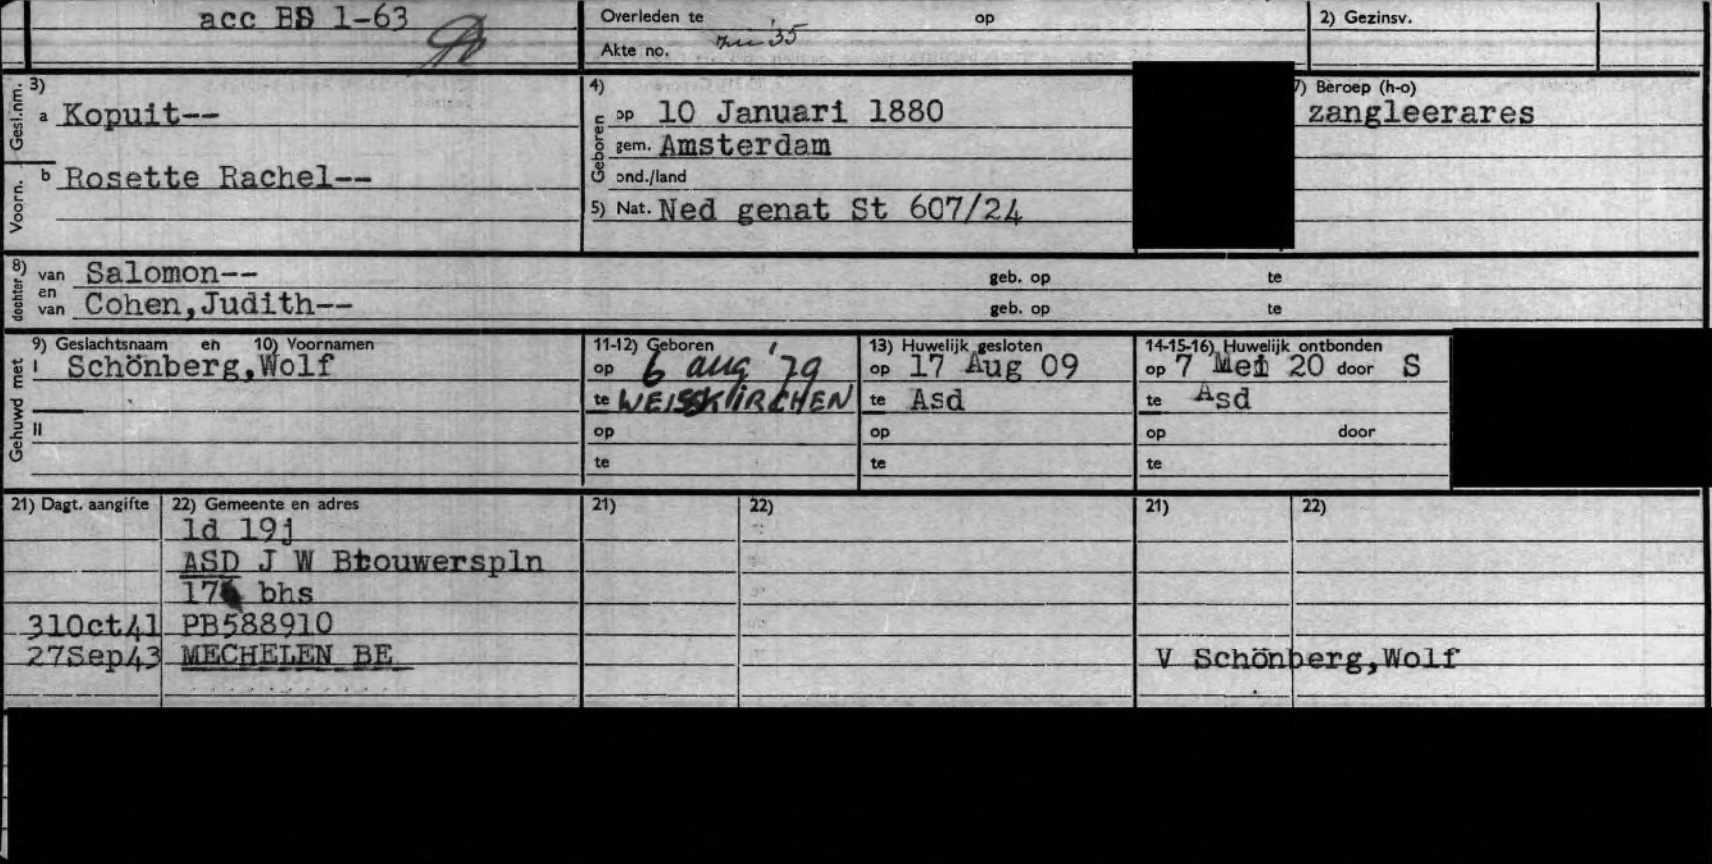 acc BS 1-63
Overleden te op
2) Gezinsv.
Akte no. '35
3)
Gesl.nm. a Kopuit--
Voorn. b Rosette Rachel--
4)
Geboren op 10 Januari 1880
gem. Amsterdam
ond./land
5) Nat. Ned genat St 607/24
7) Beroep (h-o)
zangleerares
8) dochter van Salomon-- geb. op te
en
van Cohen,Judith-- geb. op te
Gehuwd met
9) Geslachtsnaam en 10) Voornamen
I Schönberg,Wolf
II
11-12) Geboren
op 6 aug '79
te WEISSKIRCHEN
op
te
13) Huwelijk gesloten
op 17 Aug 09
te Asd
op
te
14-15-16) Huwelijk ontbonden
op 7 Mei 20 door S
te Asd
op door
te
21) Dagt. aangifte 22) Gemeente en adres
ld 19j
ASD J W Brouwerspln
bhs
31Oct41 PB588910
27Sep43 MECHELEN BE
21) 22)
21) 22)
V Schönberg,Wolf